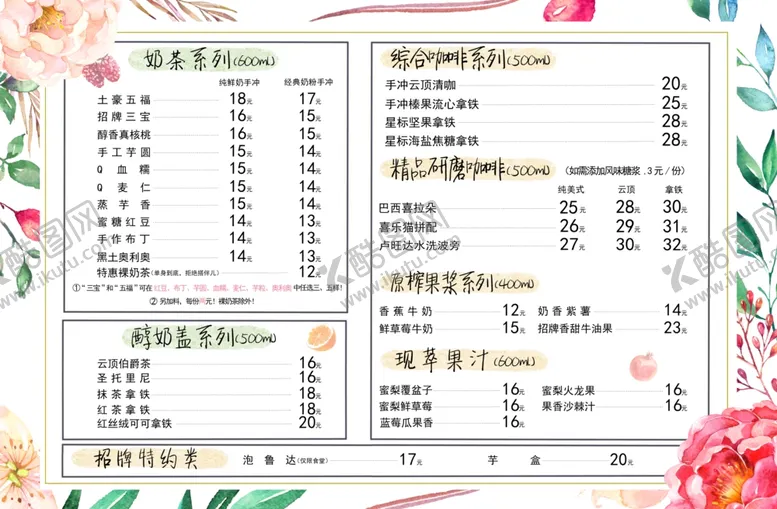 奶茶系列(600ml)
纯鲜奶手冲 经典奶粉手冲
土豪五福 18元 17元
招牌三宝 16元 15元
醇香真核桃 16元 15元
手工芋圆 15元 14元
Q血糯 15元 14元
Q麦仁 15元 14元
蒸芋香 15元 14元
蜜糖红豆 14元 13元
手作布丁 14元 13元
黑土奥利奥 14元 13元
特惠裸奶茶(单身到底，拒绝搭伴儿) 12元
①“三宝”和“五福”可在红豆、布丁、芋圆、血糯、麦仁、芋粒、奥利奥中任选三、五样!
② 另加料，每份两元！裸奶茶除外!
醇奶盖系列(500ml)
云顶伯爵茶 16元
圣托里尼 16元
抹茶拿铁 18元
红茶拿铁 18元
红丝绒可可拿铁 20元
综合咖啡系列(500ml)
手冲云顶清咖 20元
手冲榛果流心拿铁 25元
星标坚果拿铁 28元
星标海盐焦糖拿铁 28元
精品研磨咖啡(500ml) (如需添加风味糖浆.3元/份)
纯美式 云顶 拿铁
巴西喜拉朵 25元 28元 30元
喜乐猫拼配 26元 29元 31元
卢旺达水洗波旁 27元 30元 32元
原榨果浆系列(400ml)
香蕉牛奶 12元 奶香紫薯 14元
鲜草莓牛奶 15元 招牌香甜牛油果 23元
现萃果汁(600ml)
蜜梨覆盆子 16元 蜜梨火龙果 16元
蜜梨鲜草莓 16元 果香沙棘汁 16元
蓝莓瓜果香 16元
招牌特约类 泡鲁达(仅限食堂) 17元 芋盒 20元
酷图网
www.ikutu.com